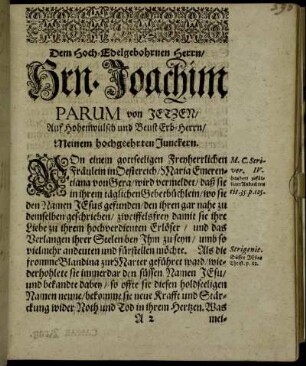 Dem Hoch-Edelgebohrnen Herrn/
Hrn. Joachim
PARUM von JETZEN/
Auf Hohenwulsch und Beust Erb-Herrn/
Meinem hochgeehrten Junckern.
VOn einem gottseeligen Freyherrlichen
Fräulein in Oestereich/Maria Emeren-
tiana von Gera/wird vermeldet/daß sie
in ihrem täglichen Gebetbüchlein/wo sie
den Namen JEsus gefunden/den ihren gar nahe zu
demselben geschrieben/zweiffelsfrey damit sie ihre
Liebe zu ihrem hochverdienten Erlöser/und das
Verlangen ihrer Seelen bey Ihm zu seyn/umb so
vielmehr andeuten und fürstellen möchte. Als die
fromme Blandina zur Marter geführet ward/wie-
derhohlete sie immerdar den süssen Namen JEsu/
und bekandte dabey/so offte sie diesen holdseeligen
Namen nenne/bekomme sie neue Krafft und Stär-
ckung wider Noth und Tod in ihrem Hertzen. Was
A 2
mei-
M. C. Scri-
ver. IV.
p. 125.
Strigenit.
p. 12.